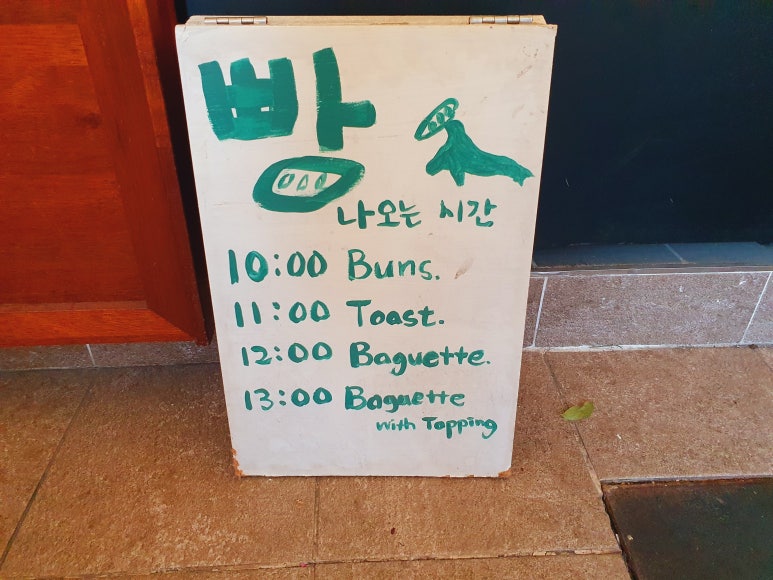 빵
나오는 시간
10:00 Buns.
11:00 Toast.
12:00 Baguette.
13:00 Baguette
with Topping